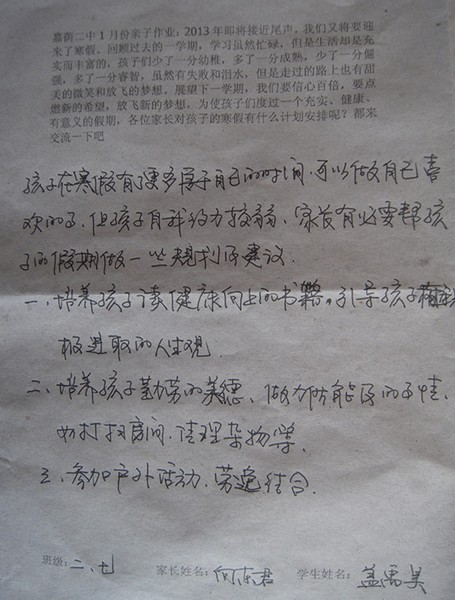 嘉街二中1月份亲子作业：2013年即将接近尾声，我们又将要迎
来了寒假。回顾过去的一学期，学习虽然忙碌，但是生活却是充
实而丰富的，孩子们少了一分幼稚，多了一分成熟，少了一分倔
强，多了一分睿智，虽然有失败和泪水，但是走过的路上也有甜
美的微笑和放飞的梦想，展望下一学期，我们要信心百倍，要点
燃新的希望，放飞新的梦想，为使孩子们度过一个充实、健康、
有意义的假期，各位家长对孩子的寒假有什么计划安排呢？都来
交流一下吧
孩子在寒假有了更多属于自己的时间，可以做自己喜
欢的事，但孩子自我约力较弱，家长有必要帮孩
子的假期做一些规划和建议．
一、培养孩子读健康向上的书籍。引导孩子积
极进取的人生观．
二、培养孩子勤劳的美德、做力所能及的事情．
如打扫房间．清理杂物等．
三．参加户外活动．劳逸结合．
班级：二、七 家长姓名：何东君 学生姓名：盖禹昊